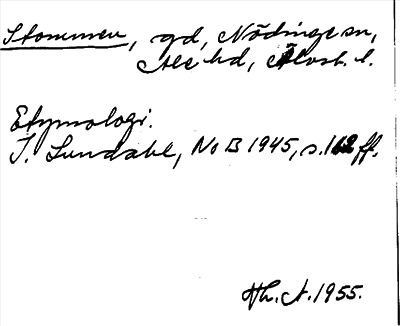 Stommen, gd, Nödinge sn,
Ale hd, Älvsb. l.
Etymologi.
I. Lundahl, NoB 1945, s. 162 ff.
Hh. A. 1955.